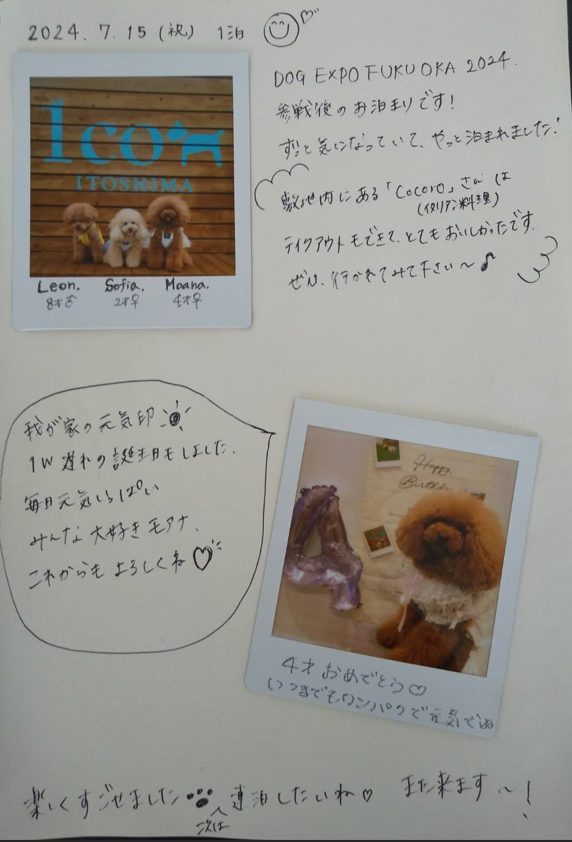 2024.7.15(祝) 1泊
DOG EXPO FUKUOKA 2024.
参戦後のお泊まりです!
ずっと気になっていて、やっと泊まれました!
敷地内にある「Cocoro」さんは
(イタリアン料理)
テイクアウトもできて、とてもおいしかったです。
ぜひ、行かれてみて下さい〜♪
1co
ITOSHIMA
Leon. Sofia. Moana.
8才♂ 2才♀ 4才♀
我が家の元気印
1W遅れの誕生日もしました。
毎日元気いっぱい
みんな大好きモアナ、
これからもよろしくね♡
Happy
4才おめでとう♡
いつまでもワンパクで元気でね
楽しくすごせました 次は連泊したいね♡ また来ます〜!